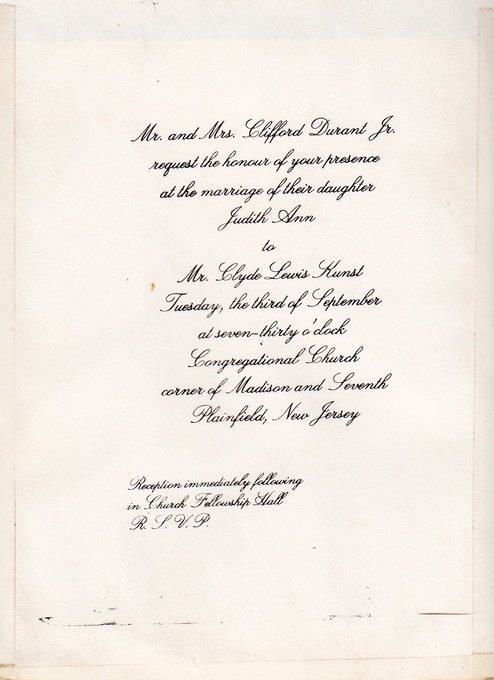 Mr. and Mrs. Clifford Durant Jr.
request the honour of your presence
at the marriage of their daughter
Judith Ann
to
Mr. Clyde Lewis Kunst
Tuesday, the third of September
at seven-thirty o'clock
Congregational Church
corner of Madison and Seventh
Plainfield, New Jersey
Reception immediately following
in Church Fellowship Hall
R. S. V. P.